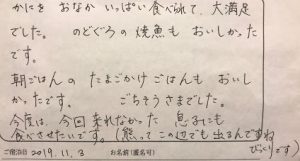 かにを おなか いっぱい 食べられて、大満足
でした。 のどぐろの 焼魚も おいしかった
です。
朝ごはんの たまごかけごはんも おいし
かったです。 ごちそうさまでした。
今度は、今回 来れなかった 息子にも
食べさせたいです。(熊って この辺でも 出るんですね
びっくりです
ご宿泊日 2019.11.3 お名前(匿名可)